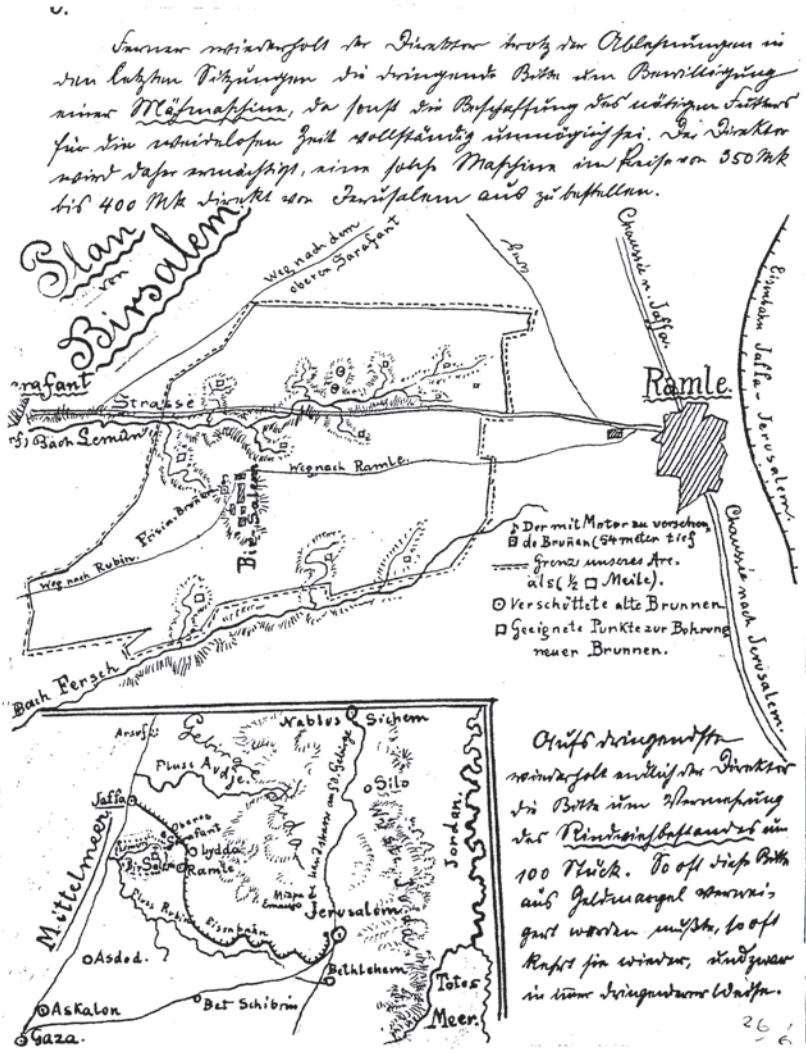 Ferner wiederholt der Direktor trotz der Ablehnungen in
den letzten Sitzungen die dringende Bitte um Bewilligung
einer Mähmaschine, da sonst die Beschaffung des nötigen Futters
für die weidelosen Zeit vollständig unmöglich sei. Der Direktor
wird daher ermächtigt, eine solche Maschine im Preise von 350 Mk
bis 400 Mk direkt von Jerusalem aus zu bestellen.
Plan
von
Birsalem
Weg nach dem
oberen Sarafant
Weg
Chaussée n. Jaffa.
Eisenbahn Jaffa-Jerusalem.
Ramle.
rafant
Strasse
Bach Lemûn
Weg nach Ramle.
Frisin-Bruñen
Bir Salem
Weg nach Rubin.
Bach Fersch
Der mit Motor zu versehen
de Bruñen (54 meter tief
Grenze unseres Are.
als (½ □ Meile).
Verschüttete alte Brunnen
Geeignete Punkte zur Bohrung
neuer Brunnen.
Chaussée nach Jerusalem.
Arsuf
Gebirge
Nablus
Sichem
Fluss Audje.
Silo
Jaffa
Oberes
Sarafant
Lydda
Bir Salem
Ramle
Landstrasse auf d. Gebirge
Jordan.
Mittelmeer
Fluss Rubin
Eisenbahn
Mizpa
Emaus
Jerusalem.
Asdod.
Bethlehem
Bet Schibrin
Askalon
Gaza.
Totes
Meer.
Aufs dringendste
wiederholt endlich der Direktor
die Bitte um Vermehrung
des Rindviehbestandes um
100 Stück. So oft diese Bitte
aus Geldmangel verwei-
gert werden mußte, so oft
kehrt sie wieder, und zwar
in immer dringenderer Weise.
26